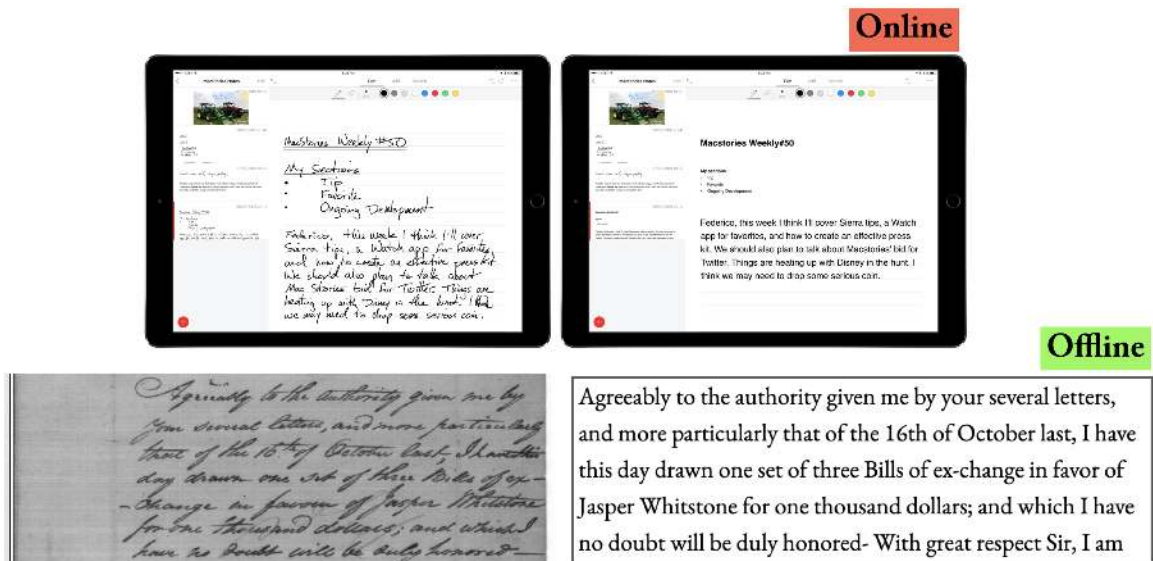 Online
Macstories Weekly #50
My Sections
• Tip
• Favorite
• Ongoing Development
Federico, this week I think I'll cover
Sierra tips, a Watch app for favorites,
and how to create an effective press kit
We should also plan to talk about
Mac Stories bid for Twitter. Things are
heating up with Disney in the hunt. I think
we may need to drop some serious coin.
Macstories Weekly#50
My sections
• Tip
• Favorite
• Ongoing Development
Federico, this week I think I'll cover Sierra tips, a Watch
app for favorites, and how to create an effective press
kit. We should also plan to talk about Macstories' bid for
Twitter. Things are heating up with Disney in the hunt. I
think we may need to drop some serious coin.
Offline
Agreeably to the authority given me by
your several letters, and more particularly
that of the 16th of October last, I have this
day drawn one set of three Bills of ex-
-change in favour of Jasper Whitstone
for one thousand dollars; and which I
have no doubt will be duly honored-
Agreeably to the authority given me by your several letters,
and more particularly that of the 16th of October last, I have
this day drawn one set of three Bills of ex-change in favor of
Jasper Whitstone for one thousand dollars; and which I have
no doubt will be duly honored- With great respect Sir, I am